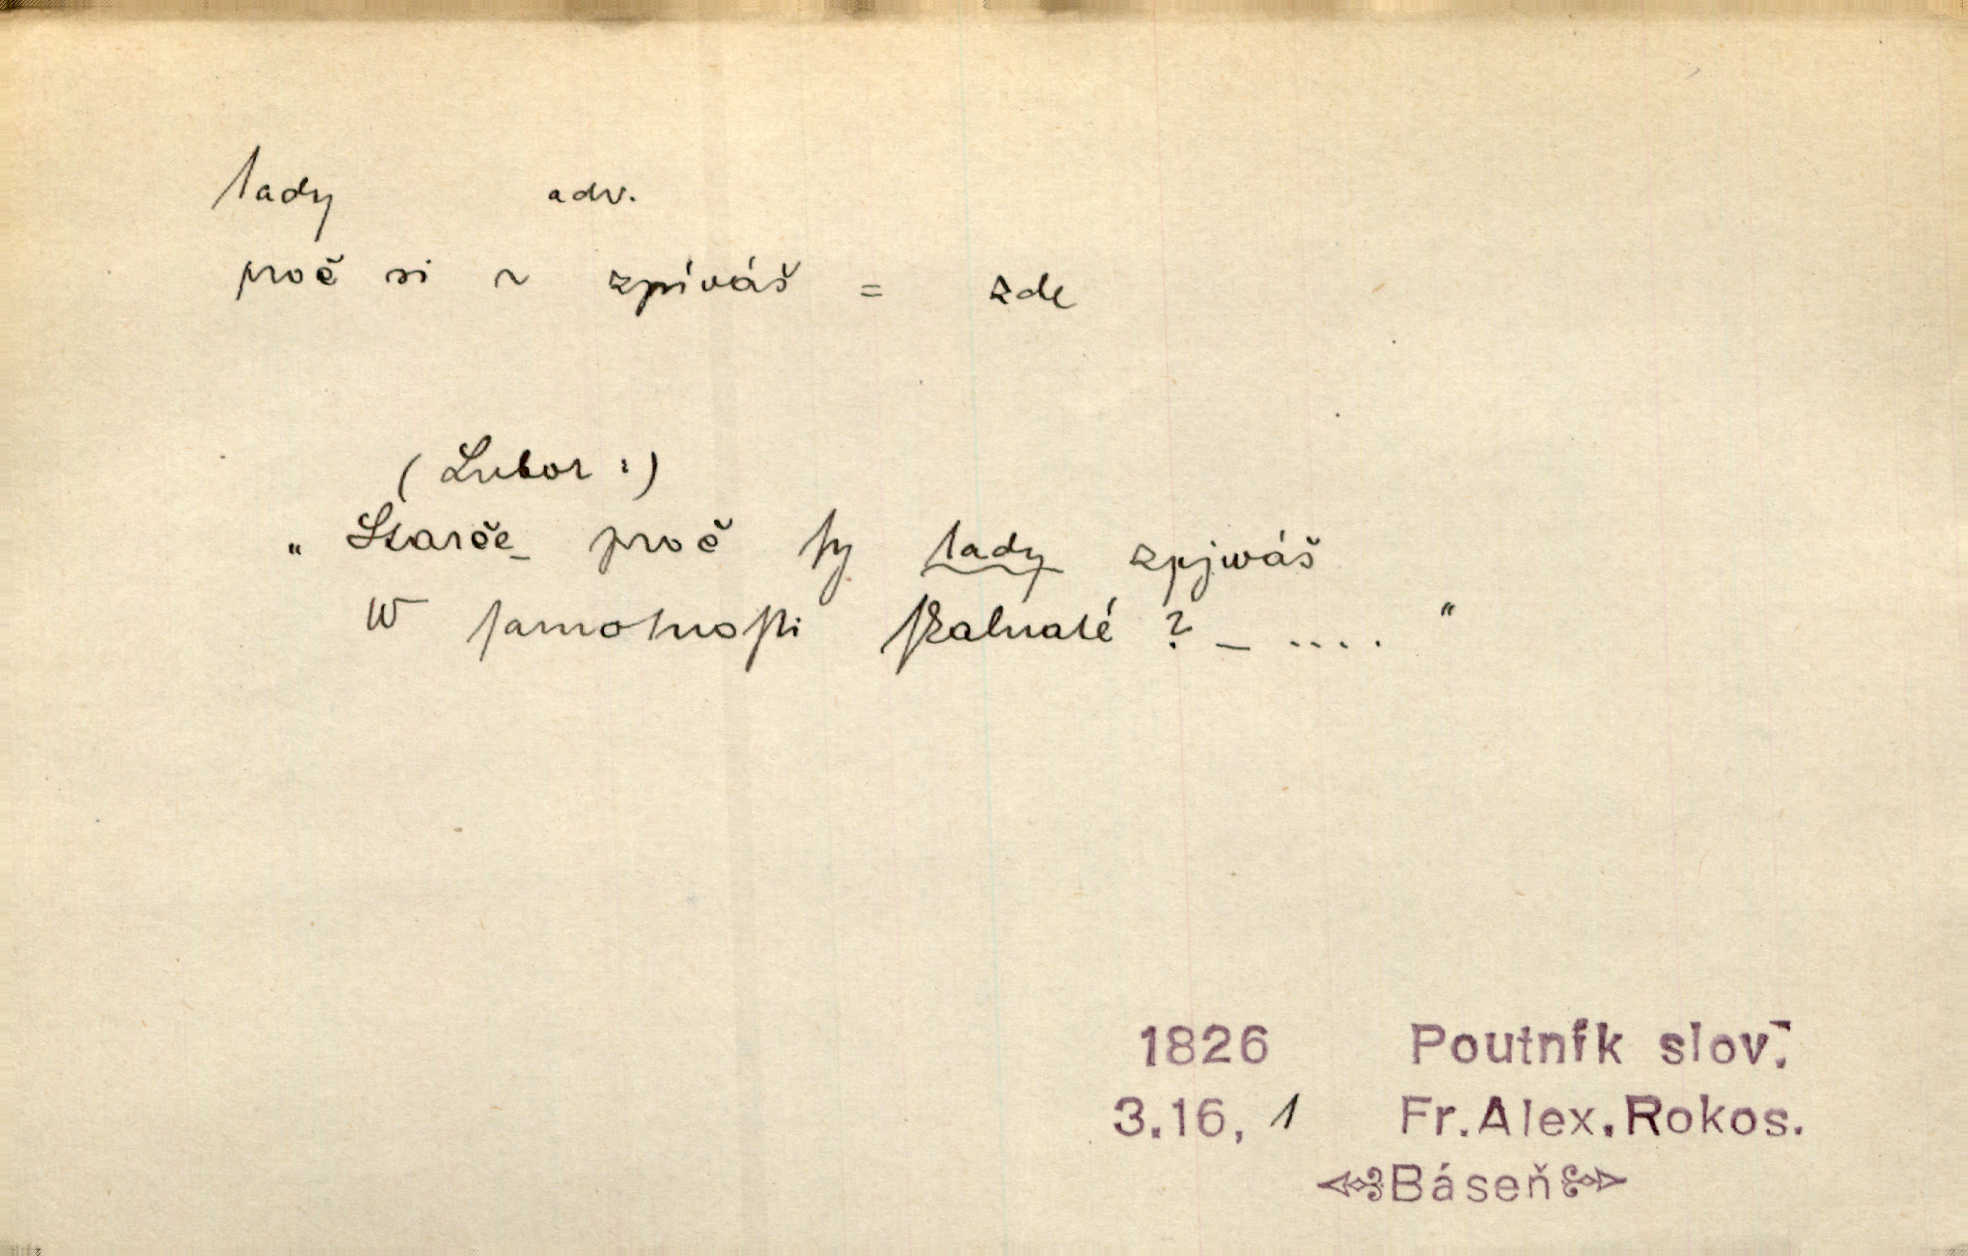 tady adv.
proč si ~ zpíváš = zde
(Lubor :)
„ Starče – proč ty tady zpjwáš
W ſamotnoſti ſkalnaté ? – .... "
1826 Poutník slov.
3.16, 1 Fr.Alex.Rokos.
Báseň